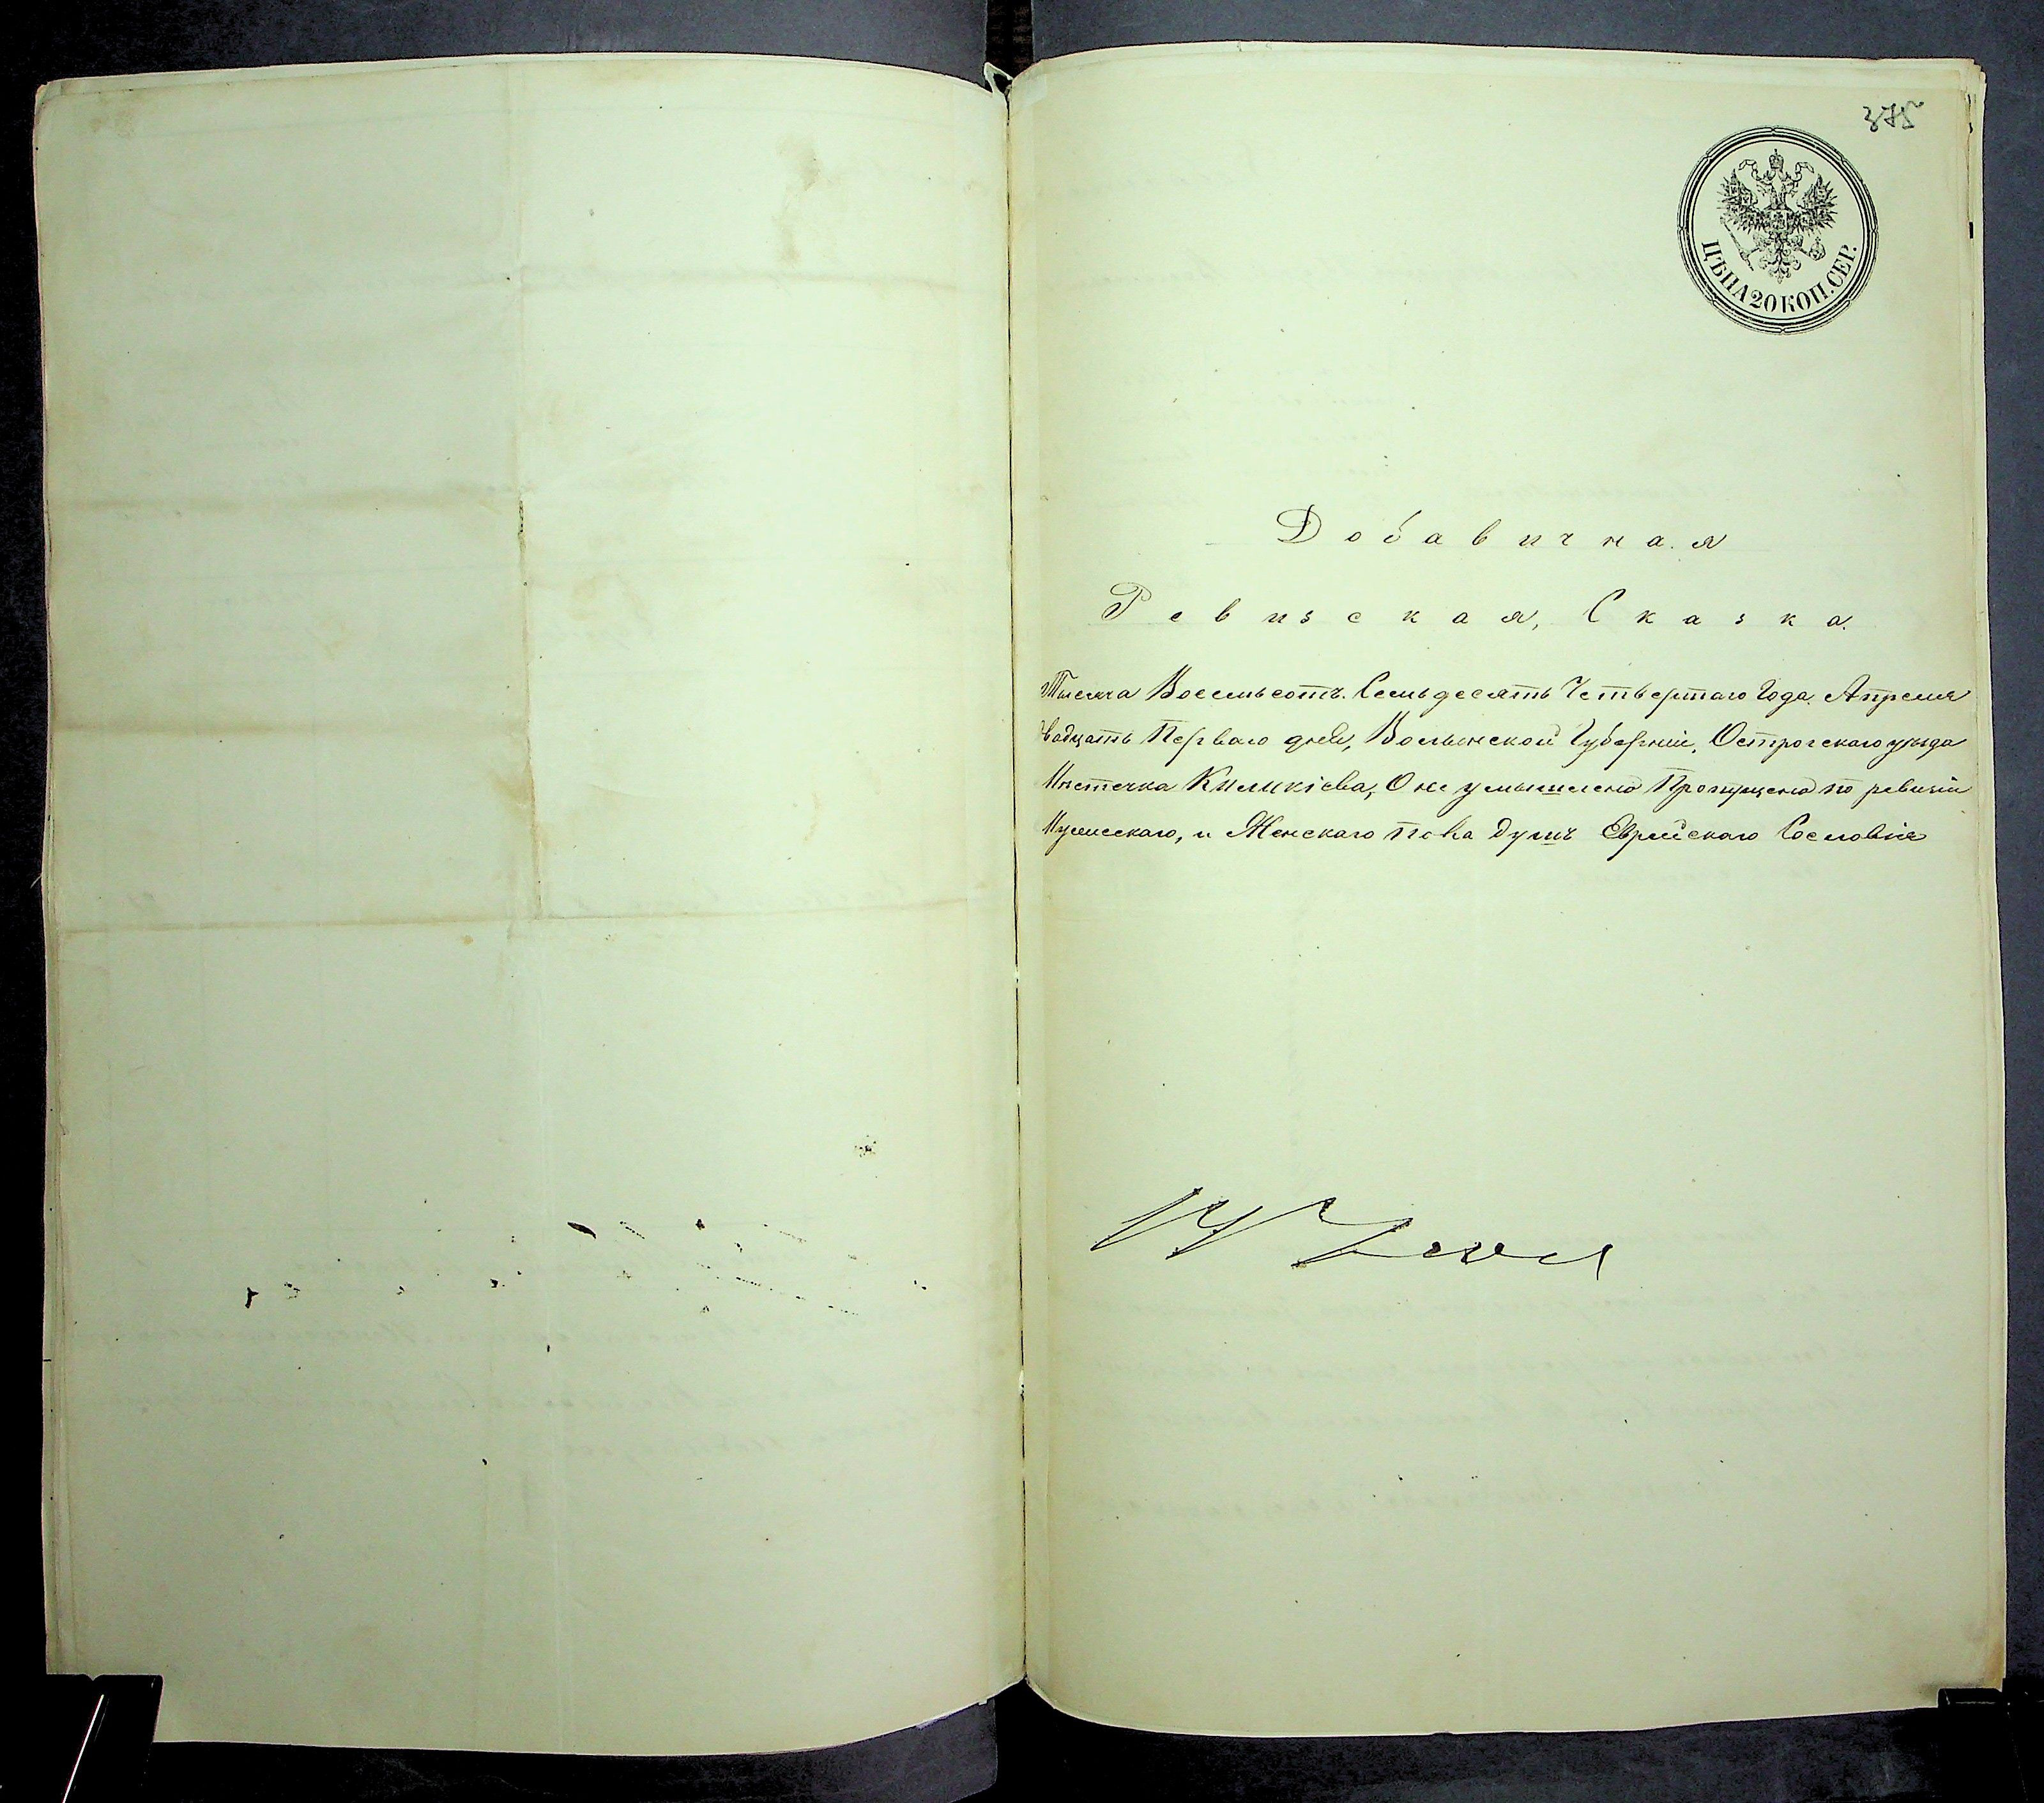 375
ЦѢНА 20 КОП. СЕР.
Добавичная
Ревизская, Сказка.
Тысяча Восемьсотъ. Семьдесять Четвертаго Года. Апреля
двадцать Перваго дня, Волынской Губерніи, Острогскаго уѣзда
Мѣстечка Киликіева, О не умышлено Пропущено по ревизіи
Мужескаго, и Женскаго пола душъ Еврейскаго Сословія